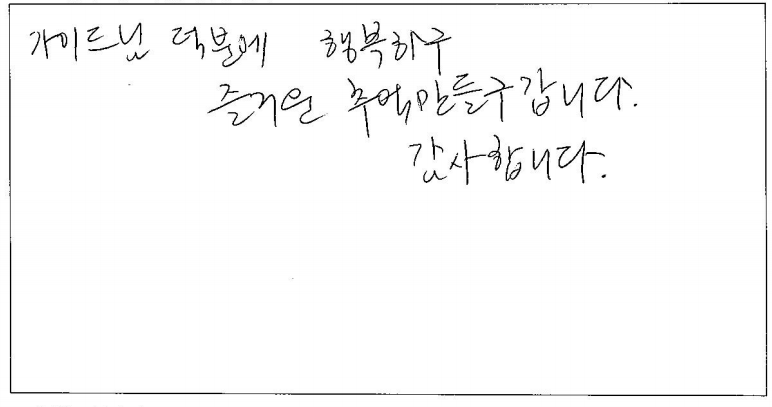 가이드님 덕분에 행복하구
즐거운 추억만들구갑니다.
감사합니다.